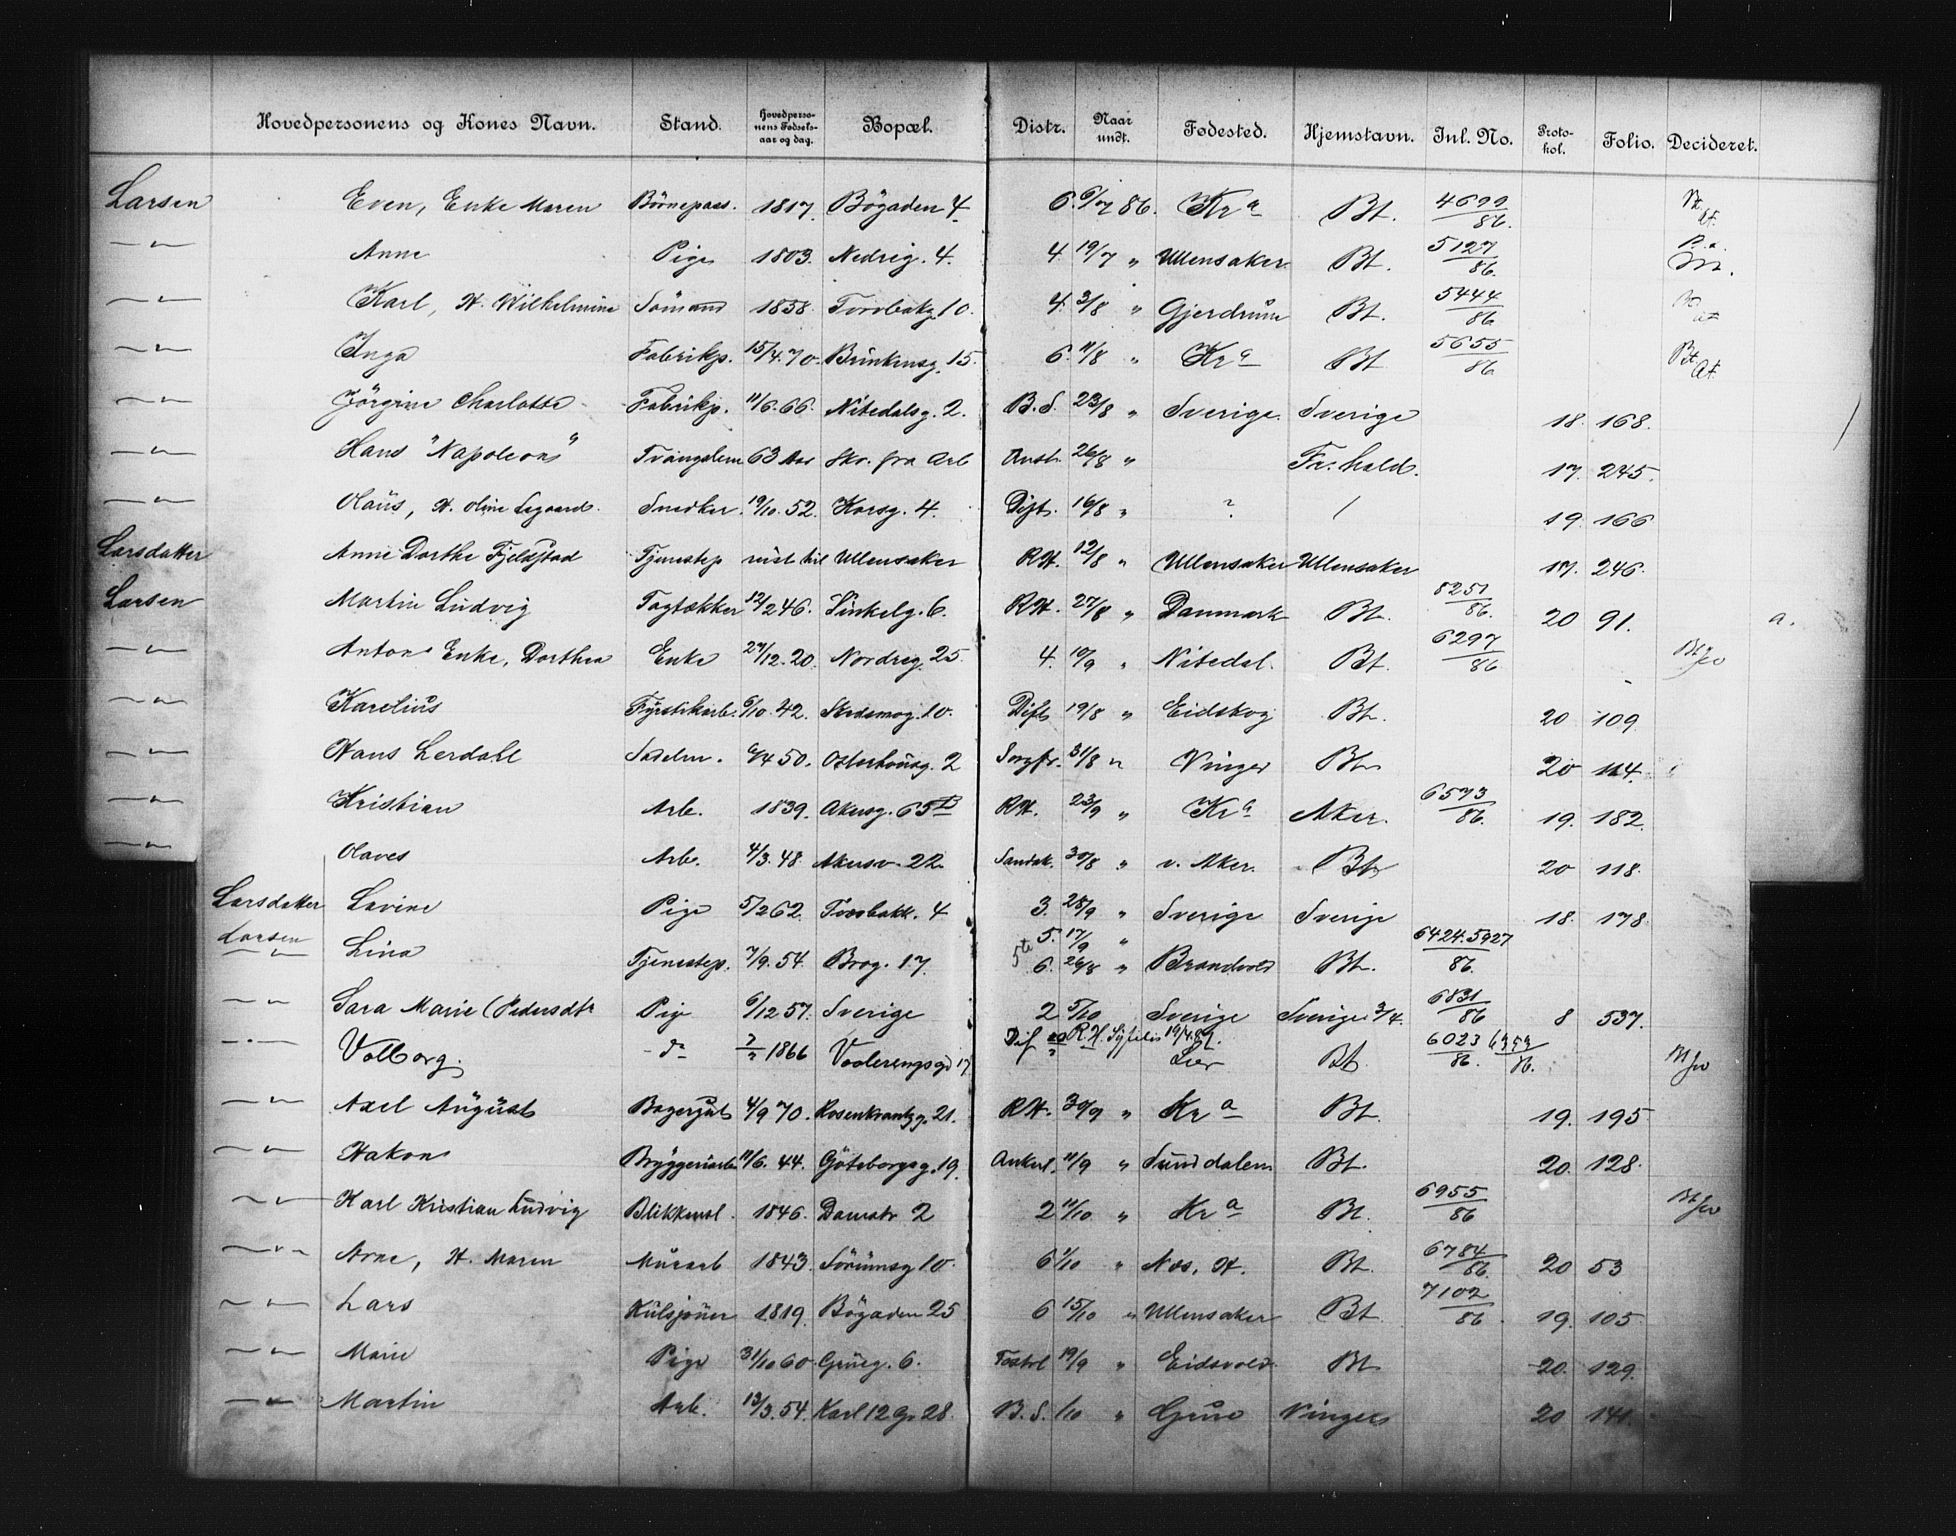 Hovedpersonens og Kones Navn. Stand. Hovedperso-nens Fødsels-aar og dag. Bopæl. Distr. Naar undt. Fødested. Hjemstavn. Jnl. No. Proto-kol. Folio. Decideret.
Larsen Even, Enke Maren Børnepass. 1817. Bøgaden 4. 6. 6/7 86. Kra Bt. 4699/86.
—"— Anne Pige 1803. Nedreg. 4. 4. 19/7 " Ullensaker Bt. 5127/86.
—"— Karl, H. Wilhelmine Sømand 1838. Torvbakg. 10. 4. 3/8 " Gjerdrum Bt. 5444/86
—"— Inga Fabrikp. 15/4.70. Brinkensg. 15. 6. 11/8 " Kra Bt 5655/86 Bt. At.
—"— Jörgine Charlotte Fabrikp. 11/6.66. Nitedalsg. 2. B.S. 23/8 " Sverige. Sverige 18. 168.
—"— Hans "Napoleons" Tvangslem 63 Aar Skr. fra Arb Anst. 26/8 " Fr.hald. 17. 245.
—"— Olaüs, H. Oline Segaard. Snedker. 19/10.52. Korsg. 4. Dift. 16/8 " ? / 19. 166
Larsdatter Anne Dorthe Fjeldstad Tjenestep reist til Ullensaker RH. 12/8 " Ullensaker Ullensaker 17. 246.
Larsen Martin Ludvig Tagtækker 12/2 46. Sinkelg. 6. RH. 27/8 " Danmark Bt. 8251/86. 20 91. a.
—"— Anton Enke, Dorthea Enke 27/12.20. Nordreg. 25. 4. 10/9 " Nitedal. Bt. 6297/86 Bt fw
—"— Karelius Fyrstikarb. 6/10.42. Stedsmog. 10. Dift. 19/8 " Eidskog Bt. 20 109.
—"— Hans Lerdahl Sadelm. 6/4 50. Osterhausg. 2 Sorgfr. 31/8 " Vinger Bt. 20 114.
—"— Kristian Arb. 1839. Akersg. 65B RH. 23/9 " Kra Aker. 6573/86. 19. 182.
—"— Olaves Arb. 4/3.48. Akersv. 22 Sandak. 30/8 " v. Aker. Bt. 20 118.
Larsdatter Lavine Pige 5/2 62. Torvbakk. 4 3. 28/9 " Sverige Sverige 18. 178.
Larsen 5. 17/9 "
—"— Lina Tjenestep. 7/9.54. Brog. 17. 5te 6. 26/8 " Brandvold Bt. 6424.5927/86.
—"— Sara Marie (Pedersdtr Pige 6/12 57. Sverige 2 5/10 Sverige Sverige 3/4. 6831/86 8 537.
R.H. Syfelis 19/4.87.
—"— Valborg. do ?/? 1866 Vaalerengsgd 17 Dif Lier Bt 6023/86. 6353/86. Bt fw
—"— Axel August Bagergut 4/9 70. Rosenkrantzg. 21. RH. 30/9 " Kra Bt. 19. 195.
—"— Hakon Bryggeriarb. 11/6.44. Göteborgsg. 19. Ankerl. 11/9 " Sunddalen Bt. 20. 128.
—"— Karl Kristian Ludvig Blikkensl. 1846. Damstr 2 2 11/10 " Kra Bt. 6955/86 Bt fw
—"— Arne, H. Maren Murarb 1843. Sörumsg 10. 6 1/10 " Næs, H. Bt. 6784/86. 20 53
—"— Lars Kulsjouer 1819. Bögaden 25 6 15/10 " Ullensaker Bt 7102/86. 19. 105.
—"— Marie Pige 31/10 60. Grüeg. 6. Tostrl 19/9 " Eidsvold. Bt 20. 129.
—"— Martin Arb. 13/3.54. Karl 12 G. 28. B.S. 1/10 " Grue Vinger 20 141.